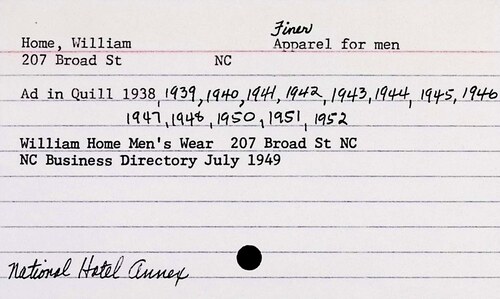 Finer
Home, William Apparel for men
207 Broad St NC
Ad in Quill 1938, 1939, 1940, 1941, 1942, 1943, 1944, 1945, 1946
1947, 1948, 1950, 1951, 1952
William Home Men's Wear 207 Broad St NC
NC Business Directory July 1949
National Hotel Annex